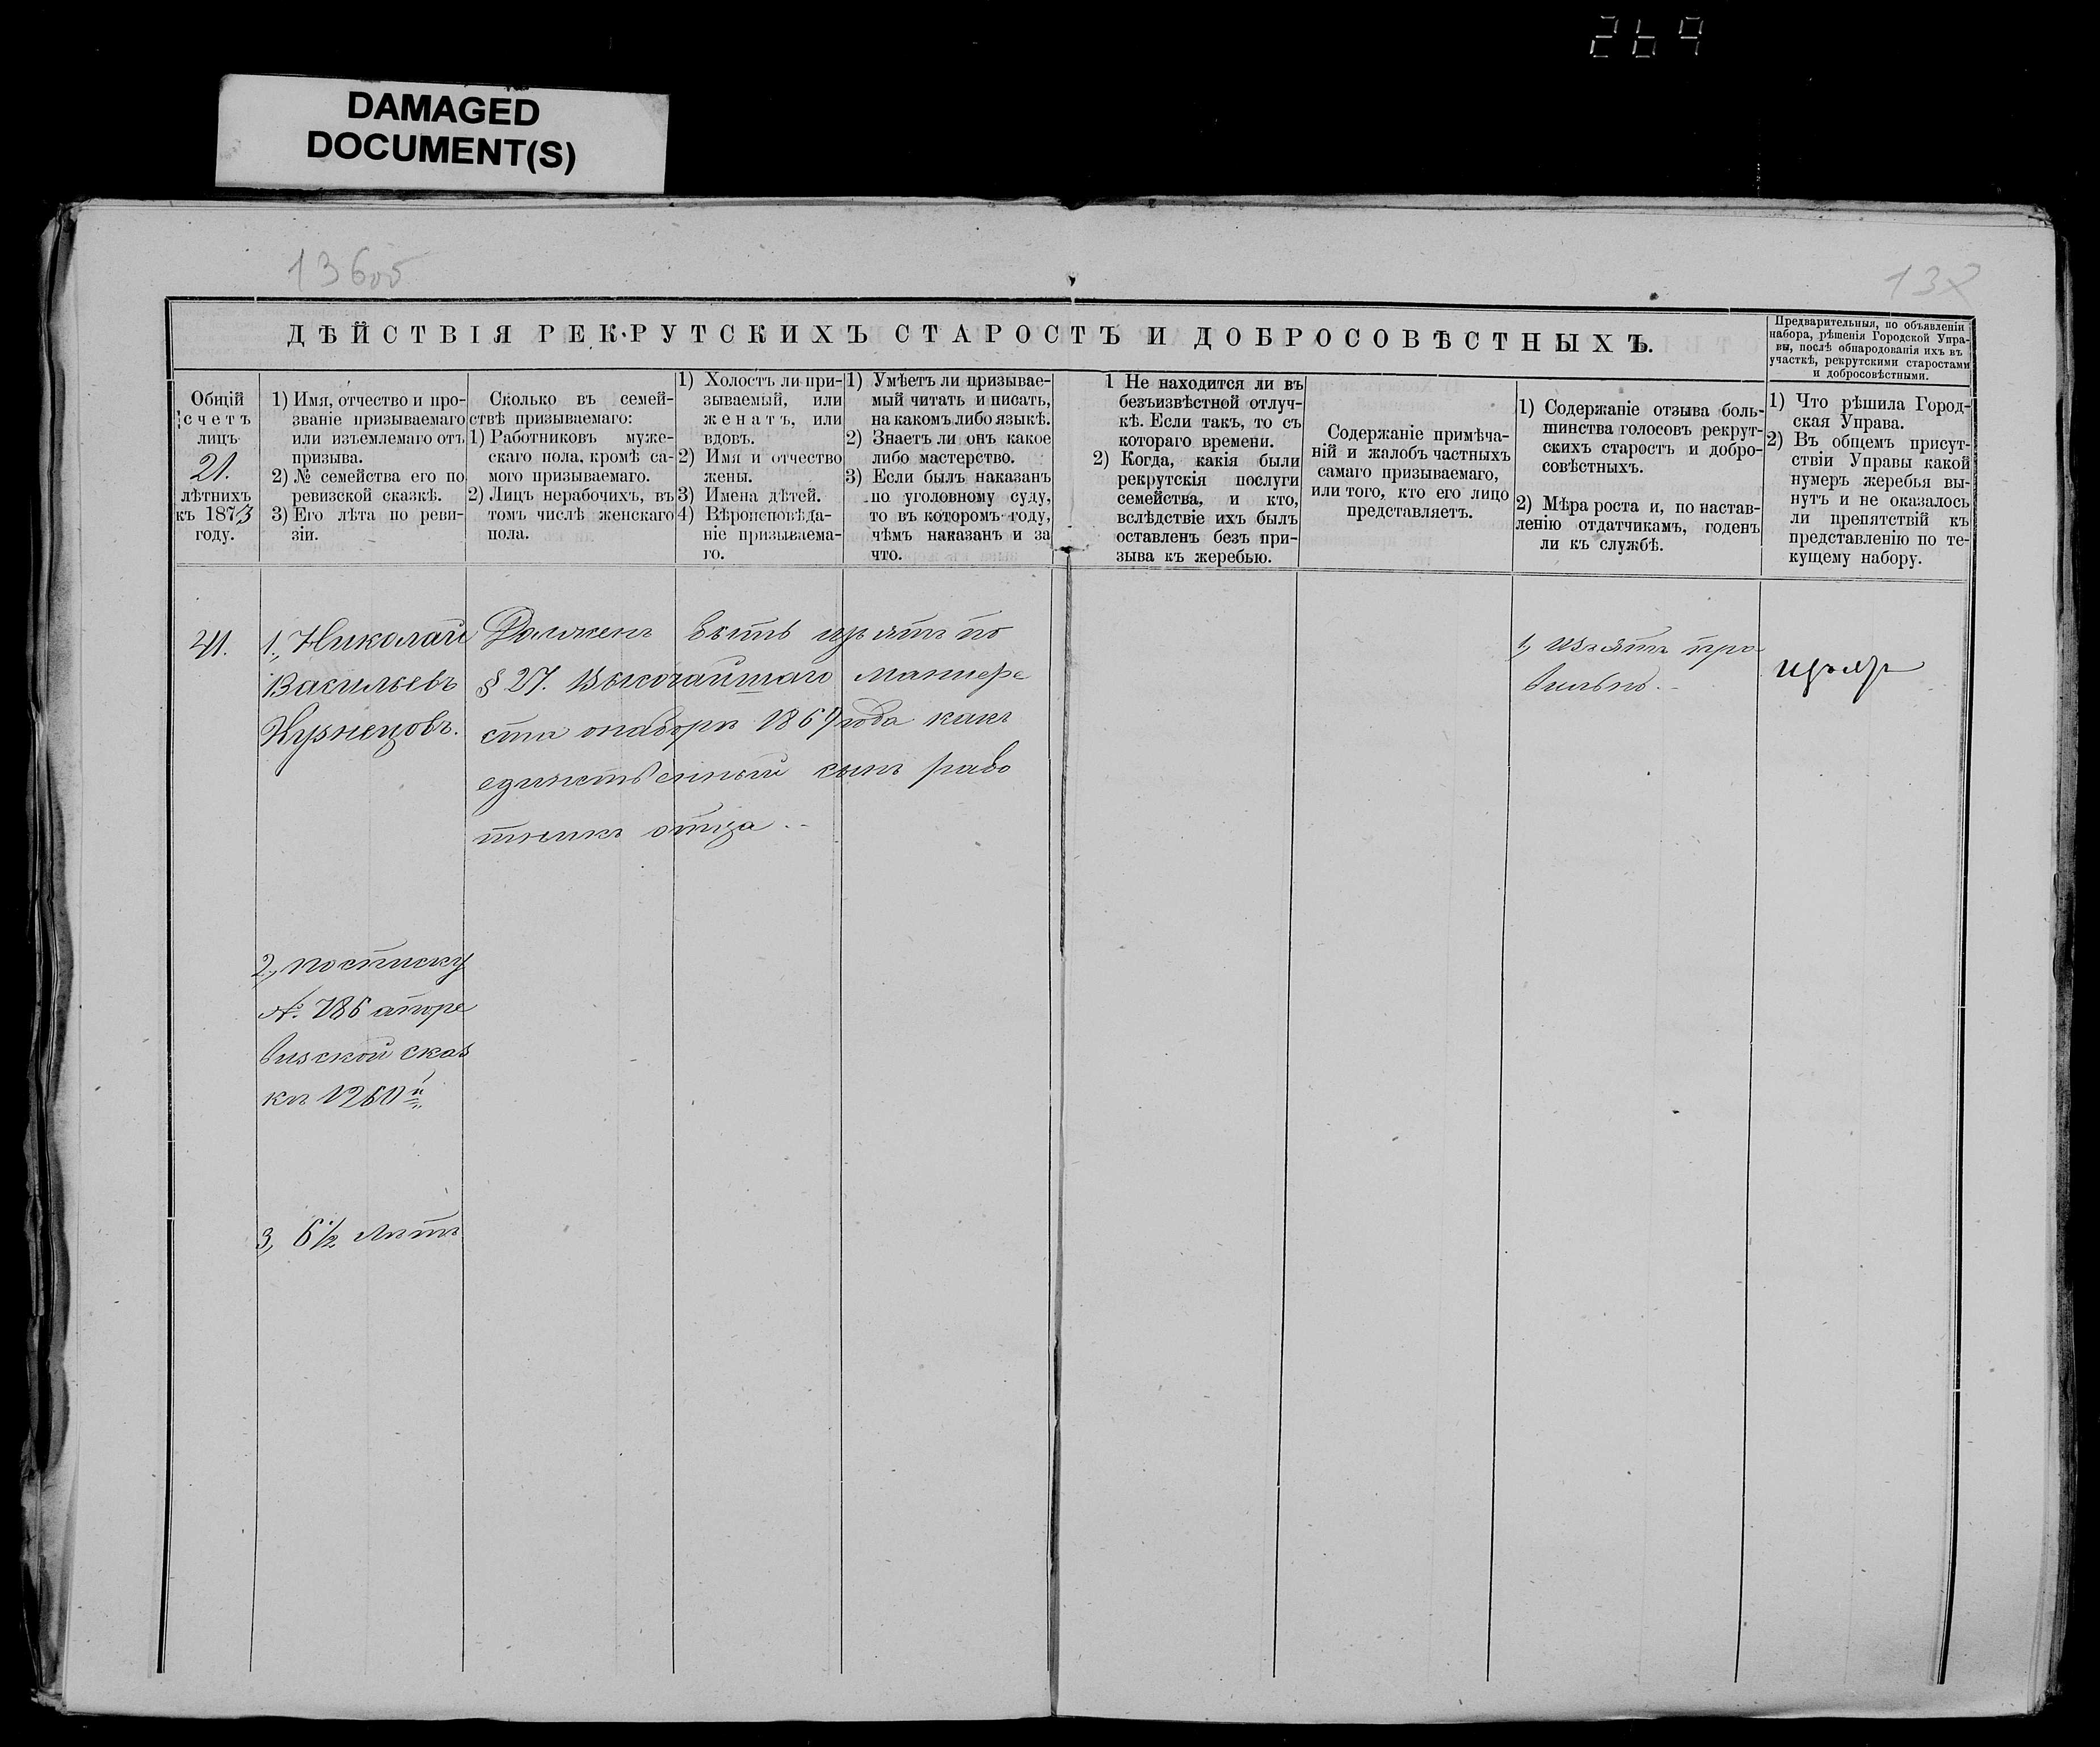 269
DAMAGED
DOCUMENT(S)
136об
ДѢЙСТВІЯ РЕКРУТСКИХЪ СТАРОСТЪ И ДОБРОСОВѢСТНЫХЪ.
Предварительныя, по объявленіи
набора, рѣшенія Городской Упра-
вы, послѣ обнародованія ихъ въ
участкѣ, рекрутскими старостами
и добросовѣстными.
Общій
счетъ
лицъ
21.
лѣтнихъ
къ 1873
году.
1) Имя, отчество и про-
званіе призываемаго
или изъемлемаго отъ
призыва.
2) № семейства его по
ревизской сказкѣ.
3) Его лѣта по реви-
зіи.
Сколько въ семей-
ствѣ призываемаго:
1) Работниковъ муже-
скаго пола, кромѣ са-
мого призываемаго.
2) Лицъ нерабочихъ, въ
томъ числѣ женскаго
пола.
1) Холостъ ли при-
зываемый, или
женатъ, или
вдовъ.
2) Имя и отчество
жены.
3) Имена дѣтей.
4) Вѣроисповѣда-
ніе призываема-
го.
1) Умѣетъ ли призывае-
мый читать и писать,
на какомъ либо языкѣ.
2) Знаетъ ли онъ какое
либо мастерство.
3) Если былъ наказанъ
по уголовному суду,
то въ которомъ году,
чѣмъ наказанъ и за
что.
1 Не находится ли въ
безъизвѣстной отлуч-
кѣ. Если такъ, то съ
котораго времени.
2) Когда, какія были
рекрутскія послуги
семейства, и кто,
вслѣдствіе ихъ былъ
оставленъ безъ при-
зыва къ жеребью.
Содержаніе примѣча-
ній и жалобъ частныхъ
самаго призываемаго,
или того, кто его лицо
представляетъ.
1) Содержаніе отзыва боль-
шинства голосовъ рекрут-
скихъ старостъ и добро-
совѣстныхъ.
2) Мѣра роста и, по настав-
ленію отдатчикамъ, годенъ
ли къ службѣ.
1) Что рѣшила Город-
ская Управа.
2) Въ общемъ присут-
ствіи Управы какой
нумеръ жеребья вы-
нутъ и не оказалось
ли препятствій къ
представленію по те-
кущему набору.
41.
1., Николай
Васильевъ
Кузнецовъ.
2., по списку
№. 786 а по ре
визской сказ
кѣ 1260й
3, 6½ лѣтъ
Долженъ быть изъятъ по
§ 27. Высочайшаго манифе
ста о наборѣ 1869 года какъ
единственный сынъ рабо
тникъ отца.
1, Изъятъ пра
вильно.